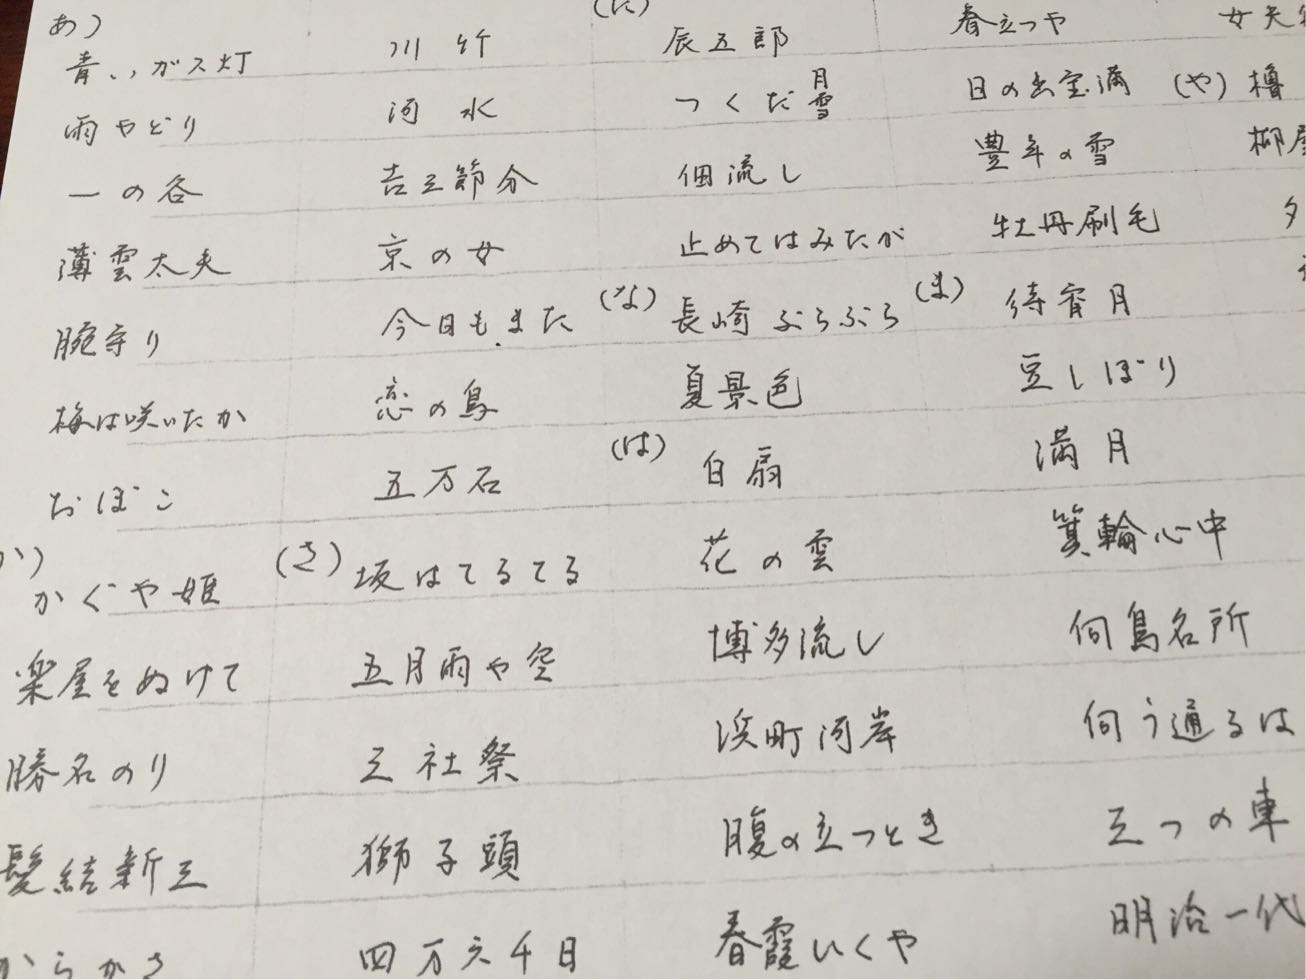 あ)
青いガス灯
雨やどり
一の谷
薄雲太夫
腕守り
梅は咲いたか
おぼこ
か)
かぐや姫
楽屋をぬけて
勝名のり
髪結新三
からかさ
川竹
河水
吉三節分
京の女
今日もまた
恋の鳥
五万石
(さ)
坂はてるてる
五月雨や空
三社祭
獅子頭
四万六千日
(た)
辰五郎
つくだ月雪
佃流し
止めてはみたが
(な)
長崎ぶらぶら
夏景色
(は)
白扇
花の雲
博多流し
浜町河岸
腹の立つとき
春霞いくや
春立つや
日の出宝満
豊年の雪
牡丹刷毛
(ま)
待宵月
豆しぼり
満月
箕輪心中
向島名所
向う通るは
三つの車
明治一代
女夫
(や)
櫓
柳屋
夕